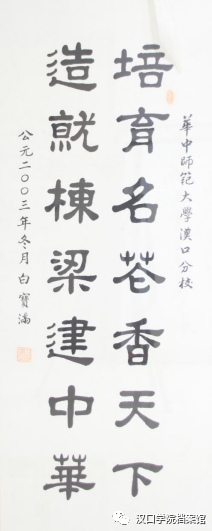 華中師範大學漢口分校
培育名花香天下
造就棟梁建中華
公元二〇〇三年冬月白寶滿
汉口学院档案馆